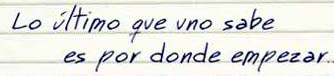 Lo último que uno sabe
es por donde empezar.